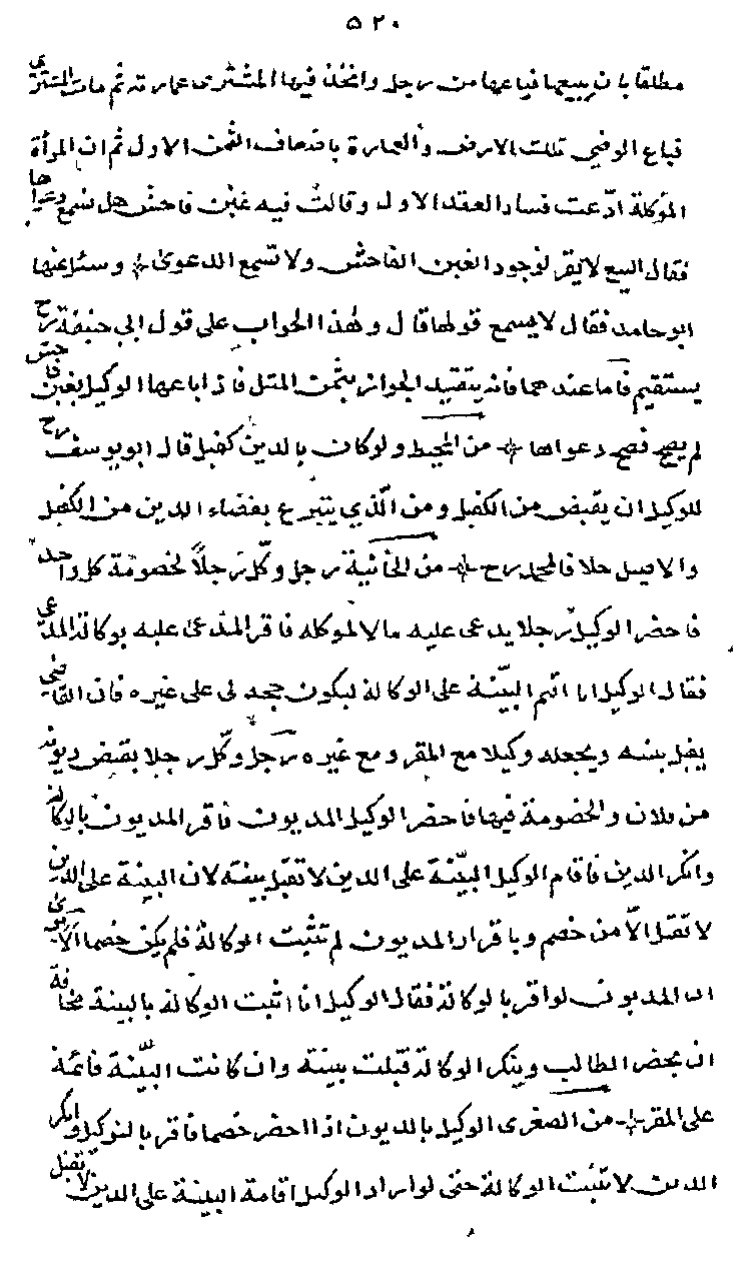 ٥٢٠
مطلقا بان يبيعها فباعها من رجل واتخذ فيها المشترى عمارته ثم مات المشترى
فباع الوصى تلك الارض والعمارة باضعاف الثمن الاول ثم ان المرأة
المؤكلة ادّعت فساد العقد الاول وقالت فيه غبن فاحش هل تسمع دعواها
فقال البيع لا يقر لوجود الغبن الفاحش ولا تسمع الدعوى وسئل عنها
ابو حامد فقال لا يسمع قولها قال وهذا الجواب على قول ابى حنيفة رح
يستقيم فاما عندهما فانه يتقيد الجواز بثمن المثل فاذا باعها الوكيل بغبن فاحش
لم يصح فصح دعواها من المحيط ولو كان بالدين كفيل قال ابو يوسف رح
للوكيل ان يقبض من الكفيل ومن الّذى يتبرع بقضاء الدين من الكفيل
والاصيل خلافا لمحمد رح من الخانية رجل وكّل رجلاً لخصومة كل واحد
فاحضر الوكيل رجلا يدعى عليه مالا لموكله فاقر المدعى عليه بوكالة المدعى
فقال الوكيل انا اقيم البيّنة على الوكالة ليكون حجة لى على غيره فان القاضى
يقبل بينته ويجعله وكيلا مع المقر ومع غيره رجل وكّل رجلا بقبض ديونه
من فلان والخصومة فيها فاحضر الوكيل المديون فاقر المديون بالوكالة
وانكر الدين فاقام الوكيل البيّنة على الدين لا تقبل بينته لان البينة على الدين
لا تقبل الاّ من خصم وباقرار المديون لم تثبت الوكالة فلم يكن خصما الا يرى
ان المديون لو اقر بالوكالة فقال الوكيل انا اثبت الوكالة بالبينة مخافة
ان يحضر الطالب وينكر الوكالة قبلت بينته وان كانت البيّنة قائمة
على المقر من الصغرى الوكيل بالديون اذا احضر خصما فاقر بالتوكيل وانكر
الدين لا تثبت الوكالة حتى لو اراد الوكيل اقامة البينة على الدين لا تقبل